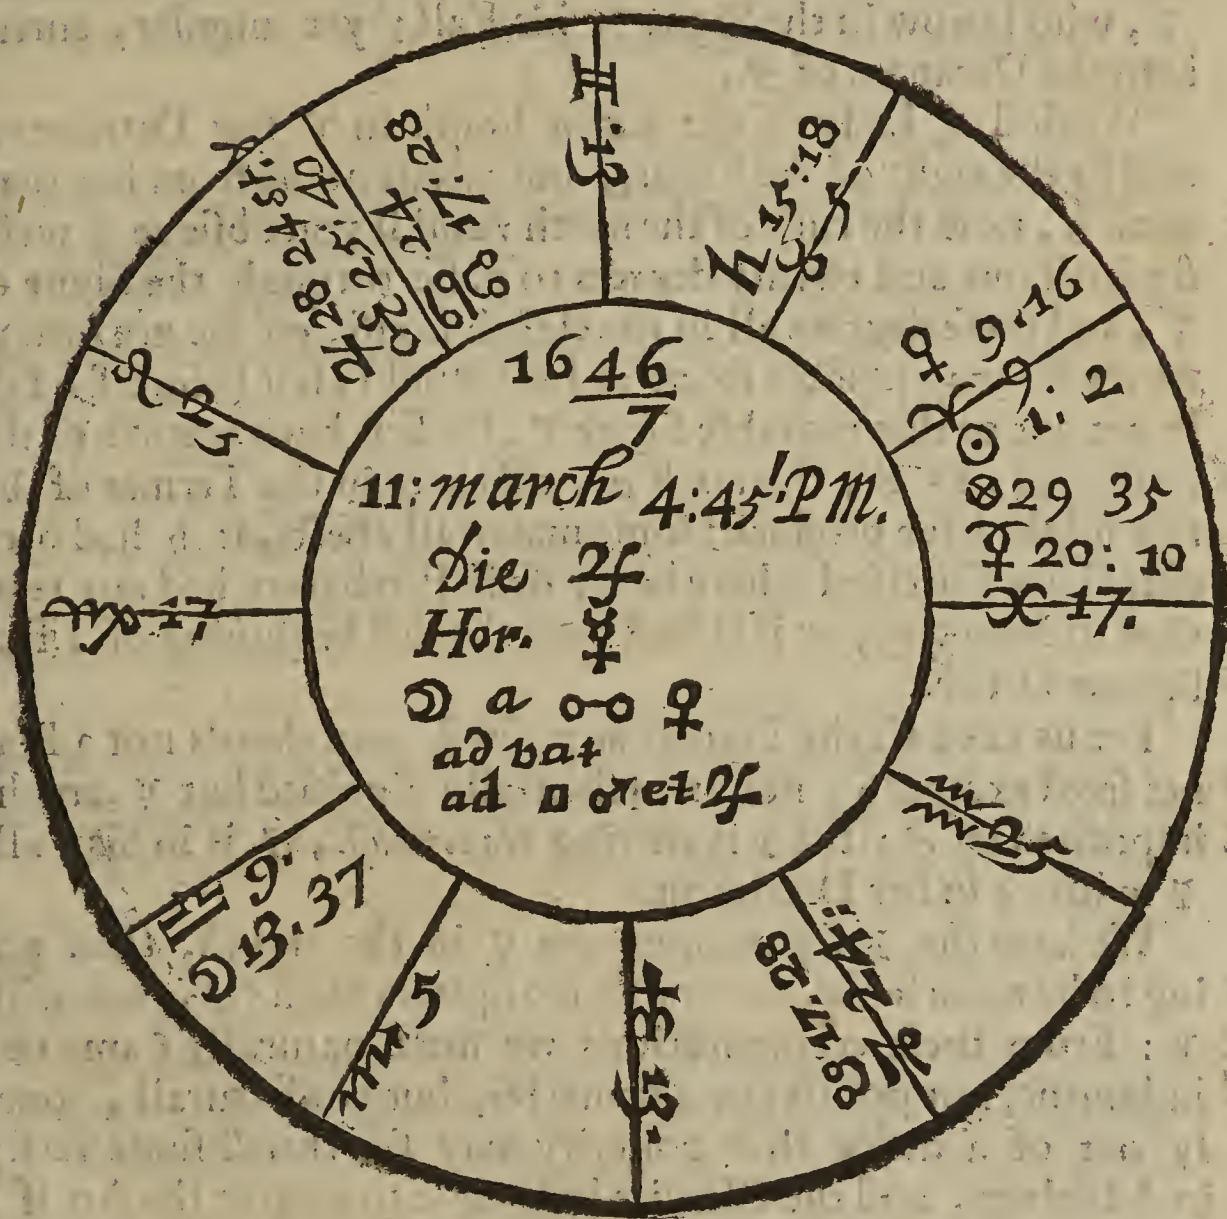 1646
7
11: march 4:45' P.M.
Die ♃
Hor. ☿
☽ a ☍ ♀
ad vat
ad □ ♂ et ♃
♊. 13
♄ 15:18
♉ 5
♀ 9.16
♈ 9
☉ 1: 2
⊗ 29 35
☿ 20: 10
♓ 17.
♒ 25
♑ 24:
☋ 17.28
♐ 13.
♏ 5
♎ 9.
☽ 13.37
♍ 17
♌ 25
♃ 28 24 st.
♂ 25: 40
♋ 24
☊ 17: 28